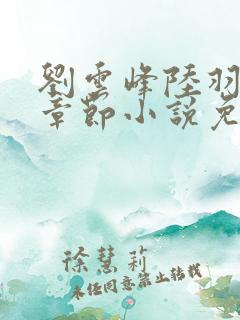 劉雲峰陸羽
章節小說免
徐慧莉
未經同意禁止轉載